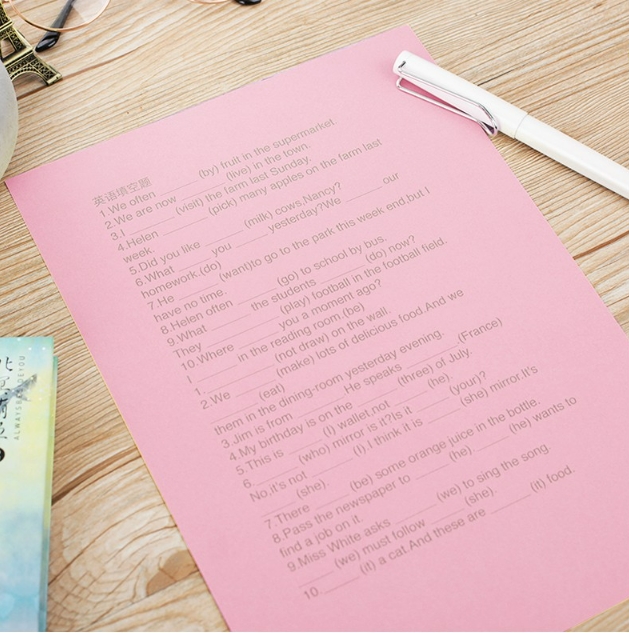 英语填空题
1.We often ______ (by) fruit in the supermarket.
2.We are now ______ (live) in the town.
3.I ______ (visit) the farm last Sunday.
4.Helen ______ (pick) many apples on the farm last
week.
5.Did you like ______ (milk) cows,Nancy?
6.What ______ you ______ yesterday?We ______ our
homework.(do)
7.He ______ (want)to go to the park this week end,but I
have no time.
8.Helen often ______ (go) to school by bus.
9.What ______ the students ______ (do) now?
They ______ (play) football in the football field.
10.Where ______ you a moment ago?
I ______ in the reading room.(be)
1. ______ (not draw) on the wall.
2.We ______ (make) lots of delicious food.And we
______ (eat)
them in the dining-room yesterday evening.
3.Jim is from ______ .He speaks ______ (France)
4.My birthday is on the ______ (three) of July.
5.This is ______ (I) wallet,not ______ (he)
6. ______ (who) mirror is it?Is it ______ (your)?
No,it's not ______ (I).I think it is ______ (she) mirror.It's
______ (she).
7.There ______ (be) some orange juice in the bottle.
8.Pass the newspaper to ______ (he) ______ (he) wants to
find a job on it.
9.Miss White asks ______ (we) to sing the song.
______ (we) must follow ______ (she).
10. ______ (it) a cat.And these are ______ (it) food.
ALWAYS BESIDE YOU